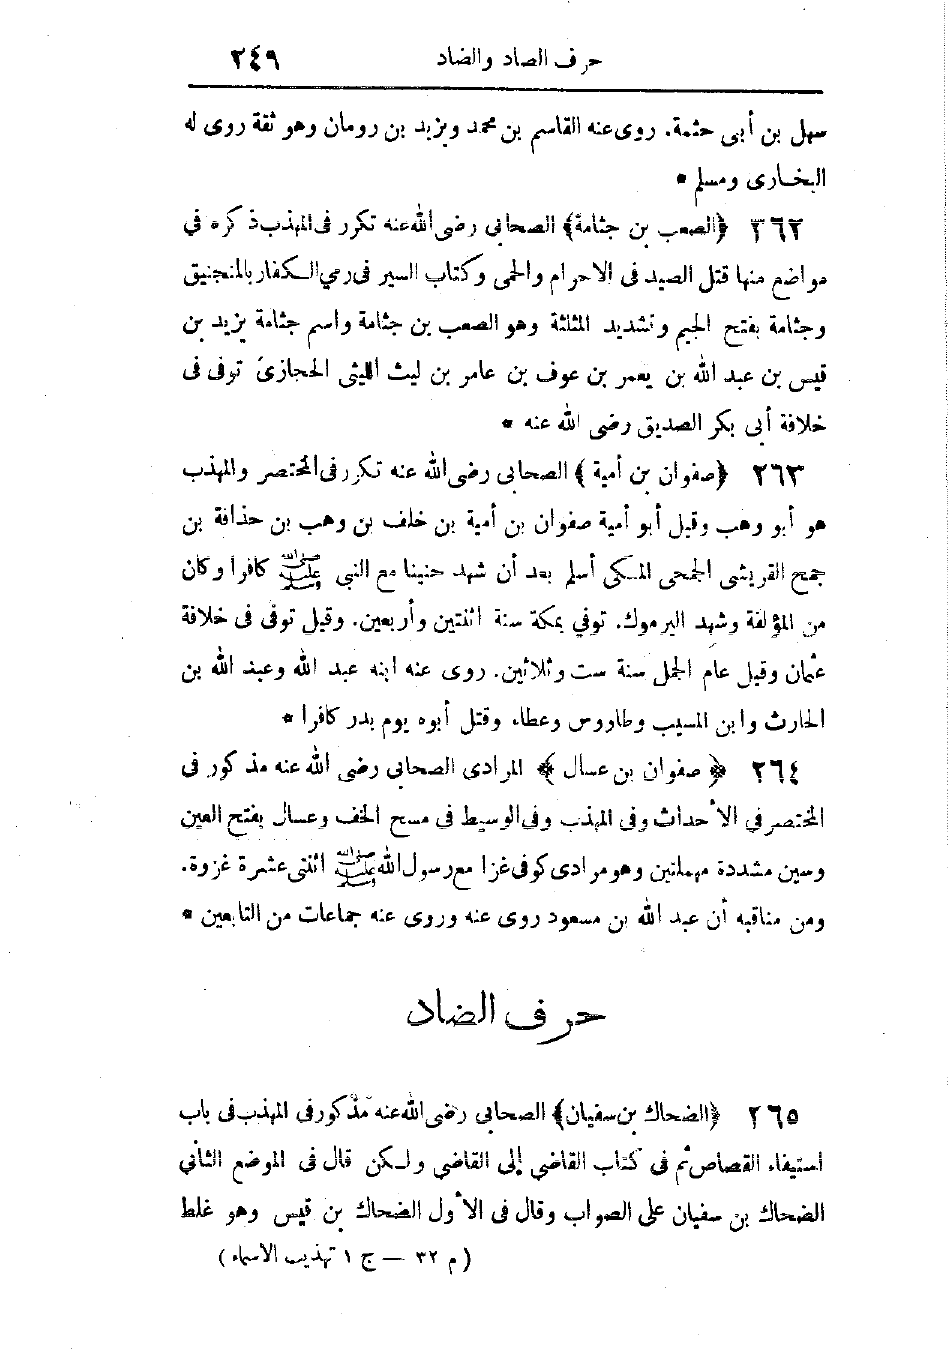 حرف الصاد والضاد ٢٤٩
سهل بن أبى حثمة. روى عنه القاسم بن محمد ويزيد بن رومان وهو ثقة روى له
البخارى ومسلم *
٣٦٢ ﴿الصعب بن جثامة﴾ الصحابي رضى الله عنه تكرر فى المهذب ذكره في
مواضع منها قتل الصيد فى الاحرام والحمى وكتاب السير فى رمي الكفار بالمنجنيق
وجثامة بفتح الجيم وتشديد المثلثة وهو الصعب بن جثامة واسم جثامة يزيد بن
قيس بن عبد الله بن يعمر بن عوف بن عامر بن ليث الليثى الحجازى توفى فى
خلافة أبى بكر الصديق رضى الله عنه *
٢٦٣ ﴿صفوان بن أمية﴾ الصحابى رضى الله عنه تكرر فى المختصر والمهذب
هو أبو وهب وقيل أبو أمية صفوان بن أمية بن خلف بن وهب بن حذافة بن
جمح القريشى الجمحى المكى أسلم بعد أن شهد حنينا مع النبى ﷺ كافرا وكان
من المؤلفة وشهد اليرموك. توفي بمكة سنة اثنتين وأربعين. وقيل توفى فى خلافة
عثمان وقيل عام الجمل سنة ست وثلاثين. روى عنه ابنه عبد الله وعبد الله بن
الحارث وابن المسيب وطاروس وعطاء وقتل أبوه يوم بدر كافرا *
٢٦٤ ﴿صفوان بن عسال﴾ المرادى الصحابى رضى الله عنه مذكور فى
المختصر في الأحداث وفى المهذب وفى الوسيط فى مسح الخف وعسال بفتح العين
وسين مشددة مهملتين وهو مرادى كوفى غزا مع رسول الله ﷺ اثنتى عشرة غزوة.
ومن مناقبه أن عبد الله بن مسعود روى عنه وروى عنه جماعات من التابعين *
حرف الضاد
٢٦٥ ﴿الضحاك بن سفيان﴾ الصحابى رضى الله عنه مذكور فى المهذب فى باب
استيفاء القصاص ثم فى كتاب القاضي إلى القاضي ولكن قال فى الموضع الثانى
الضحاك بن سفيان على الصواب وقال فى الأول الضحاك بن قيس وهو غلط
(م ٣٢ — ج ١ تهذيب الاسماء)